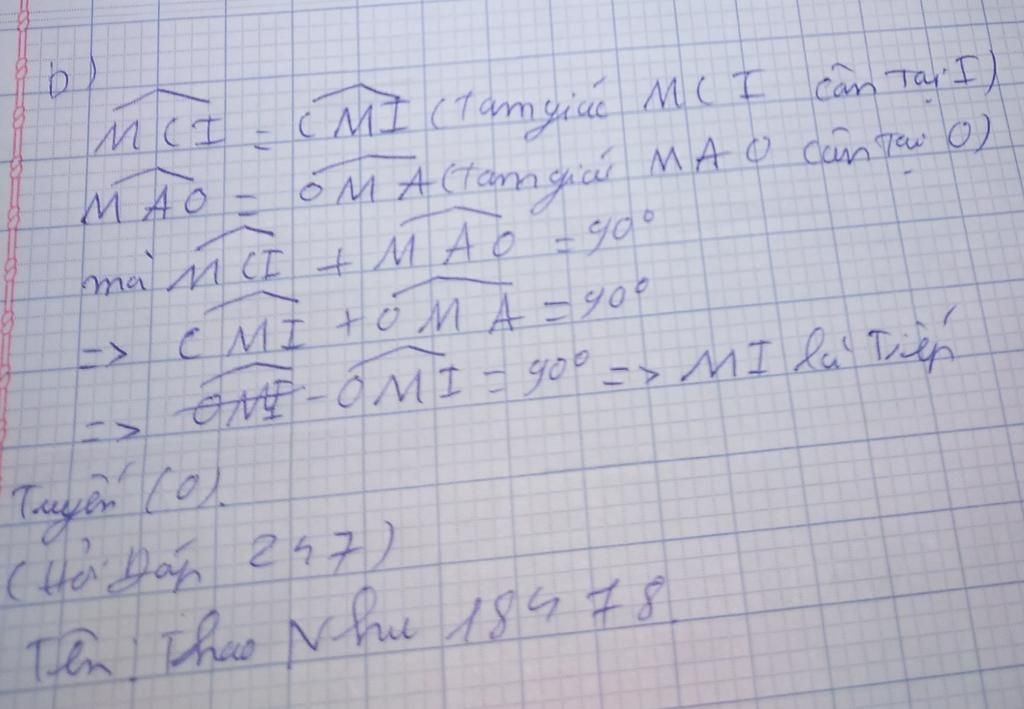 b)
MCI = CMI (Tam giác MCI cân tại I)
MAO = OMA (Tam giác MAO cân tại O)
mà MCI + MAO = 90°
=> CMI + OMA = 90°
=> OMI = 90° => MI là Tiếp
Tuyến (O).
(Hỏi Đáp 247)
Tên: Thao Nhu 18478